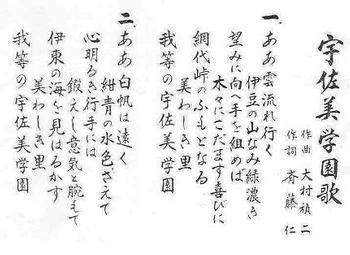 宇佐美学園歌
作曲 大村禎二
作詞 斉藤仁
一、ああ雲流れ行く
伊豆の山なみ緑濃き
望みに向へ手を組めば
木々にこだます喜びに
網代峠のふもとなる
美わしき里
我等の宇佐美学園
二、ああ白帆は遠く
紺青の水色さえて
心明るき行手には
鍛えし意気と腕もて
伊東の海を見はるかす
美わしき里
我等の宇佐美学園